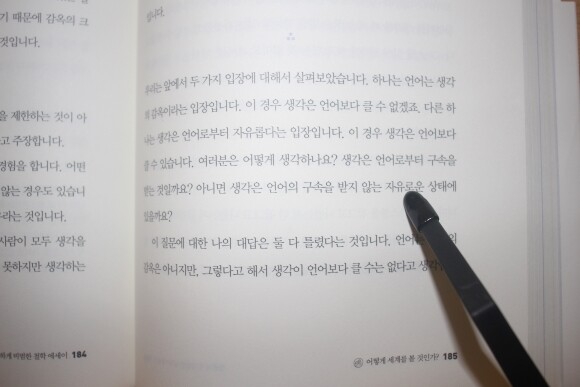 기 때문에 감옥의 크
것입니다.
을 제한하는 것이 아
고 주장합니다.
경험을 합니다. 어떤
않는 경우도 있습니
라는 것입니다.
사람이 모두 생각을
못하지만 생각하는
평범한 철학 에세이 184
입니다.
우리는 앞에서 두 가지 입장에 대해서 살펴보았습니다. 하나는 언어는 생각
의 감옥이라는 입장입니다. 이 경우 생각은 언어보다 클 수 없겠죠. 다른 하
나는 생각은 언어로부터 자유롭다는 입장입니다. 이 경우 생각은 언어보다
클 수 있습니다. 여러분은 어떻게 생각하나요? 생각은 언어로부터 구속을
받는 것일까요? 아니면 생각은 언어의 구속을 받지 않는 자유로운 상태에
있을까요?
이 질문에 대한 나의 대답은 둘 다 틀렸다는 것입니다. 의
감옥은 아니지만, 그렇다고 해서 생각이 언어보다 클 수는 없다고
어떻게 세계를 볼 것인가? 185